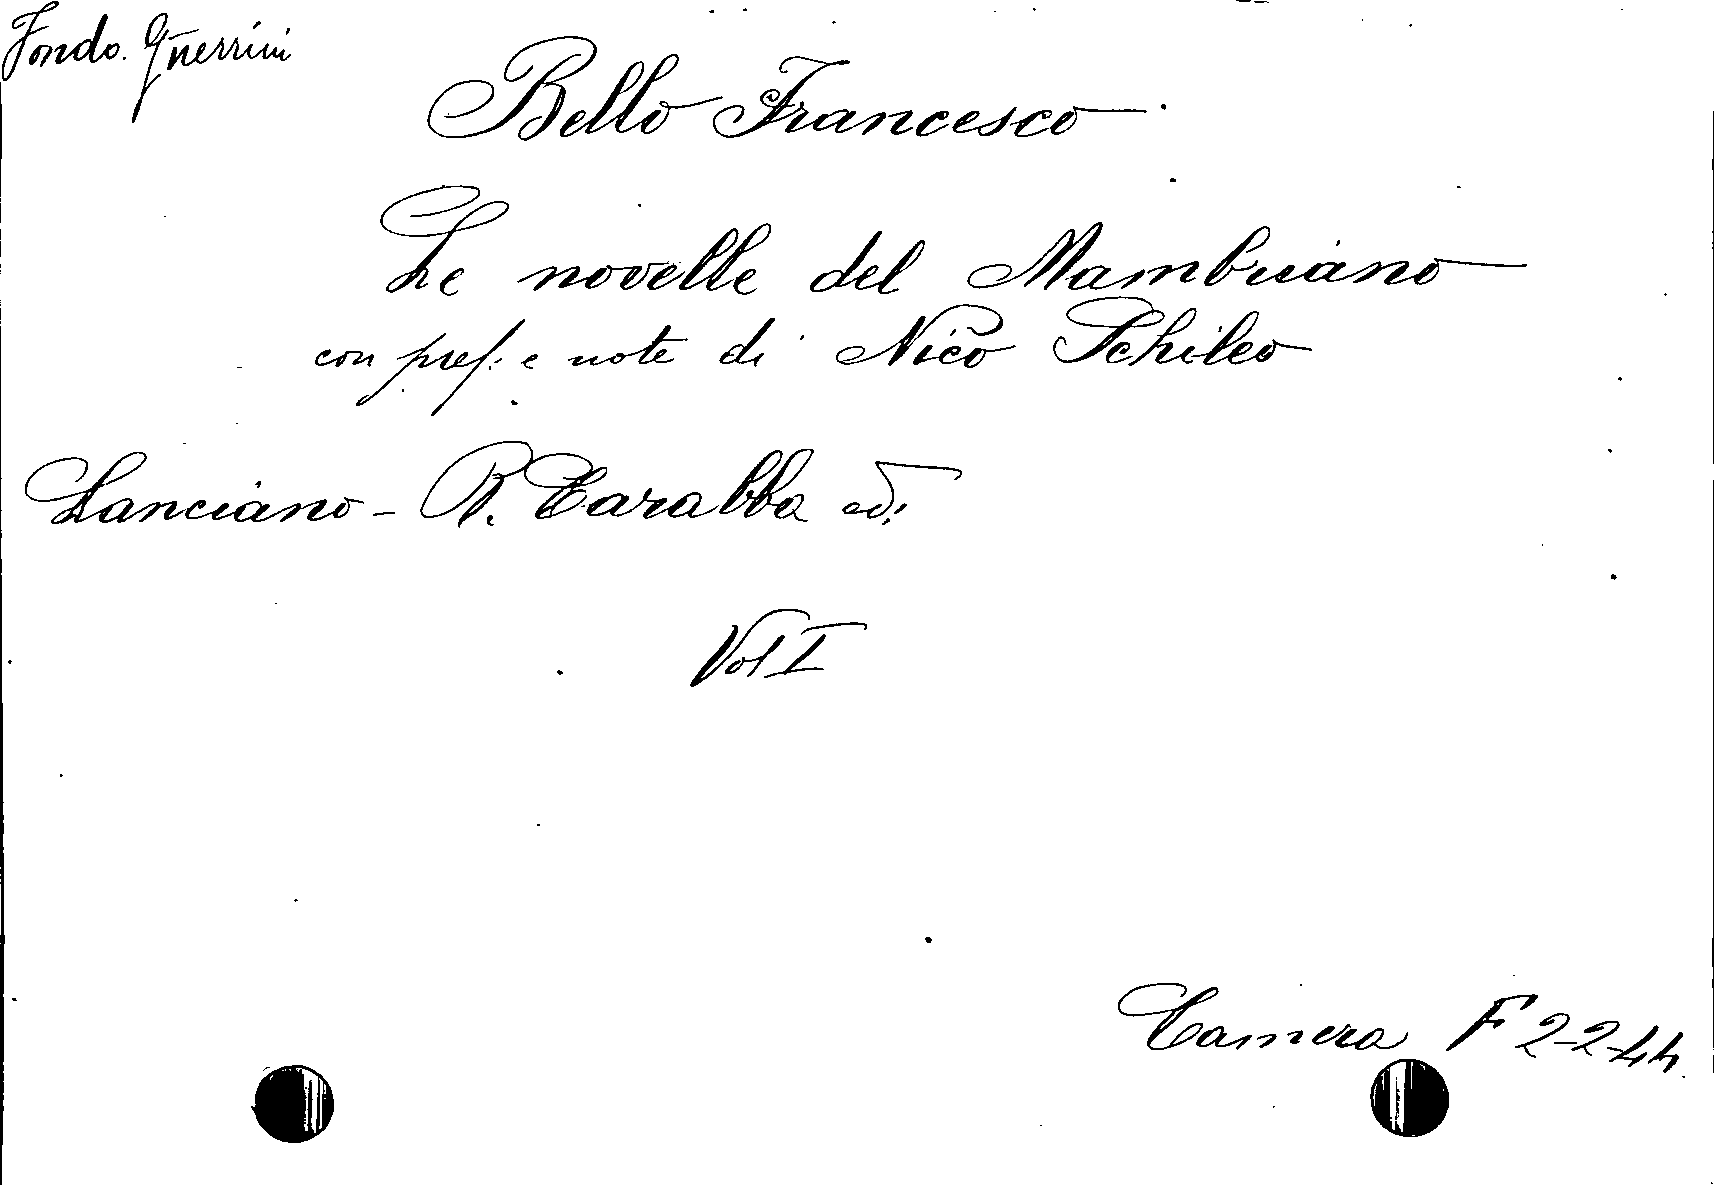 Fondo Guerrini
Bello Francesco
Le novelle del Mambriano
con pref. e note di Nico Schileo
Lanciano - R. Carabba ed.
Vol I
Camera F 2-2-44